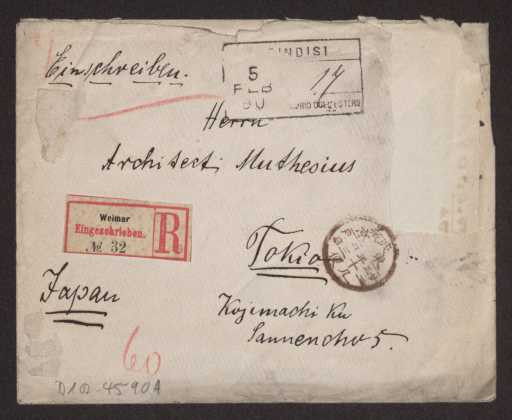 Einschreiben.
INDISI
5
FEB
90
17
Herrn
Architect Muthesius
Weimar
Eingeschrieben.
№ 32
R
Tokio
Japan
Kojimachi Ku
Sannencho 5.
60